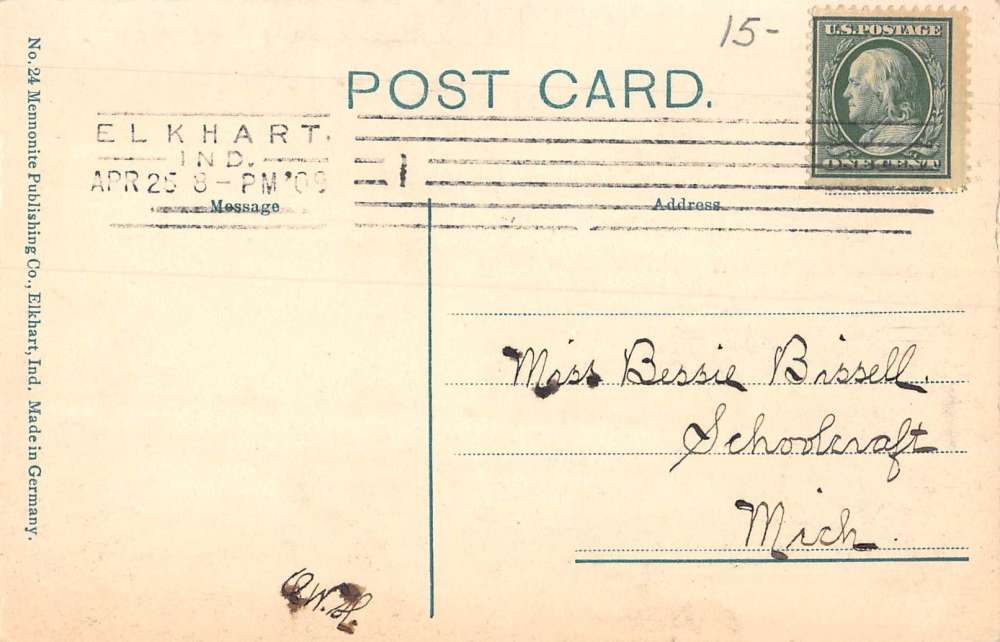 15-
U.S. POSTAGE
POST CARD.
ONE CENT
ELKHART.
IND.
APR 25 8-PM '09
1
Message
Address
No. 24 Mennonite Publishing Co., Elkhart, Ind. Made in Germany.
Miss Bessie Bissell.
Schoolcraft
Mich.
W.H.